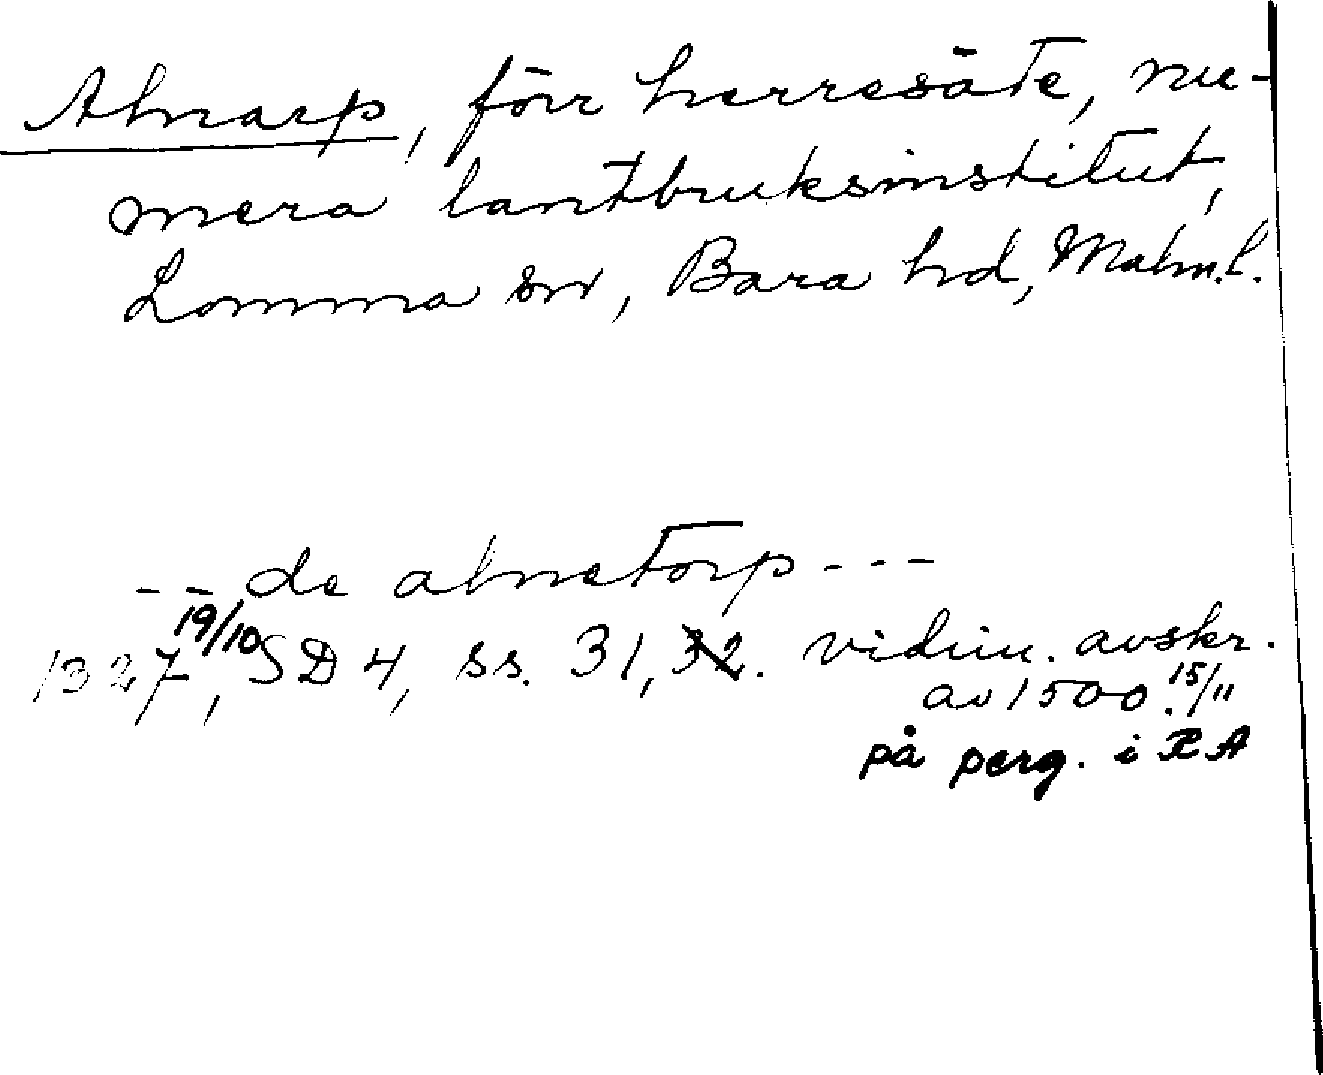 Alnarp, förr herresäte, nu-
mera lantbruksinstitut,
Lomma sn, Bara hd, Malm.l.
-- de alnetorp ---
1327 19/10, SD 4, ss. 31, 32. vidim. avskr.
av 1500 15/11
på perg. i RA